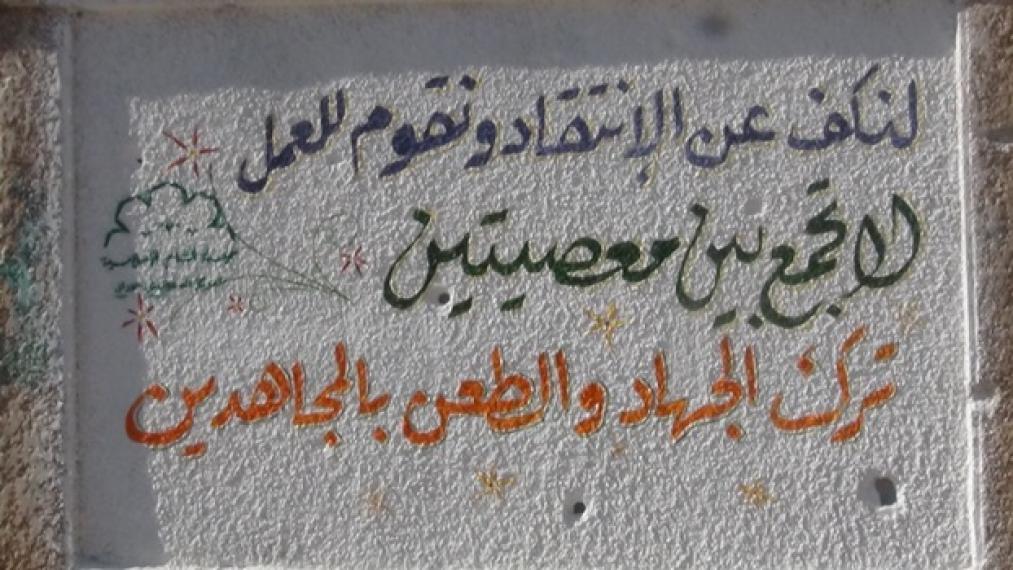 لنكف عن الإنتقاد ونقوم للعمل
لا تجمع بين معصيتين
ترك الجهاد والطعن بالمجاهدين